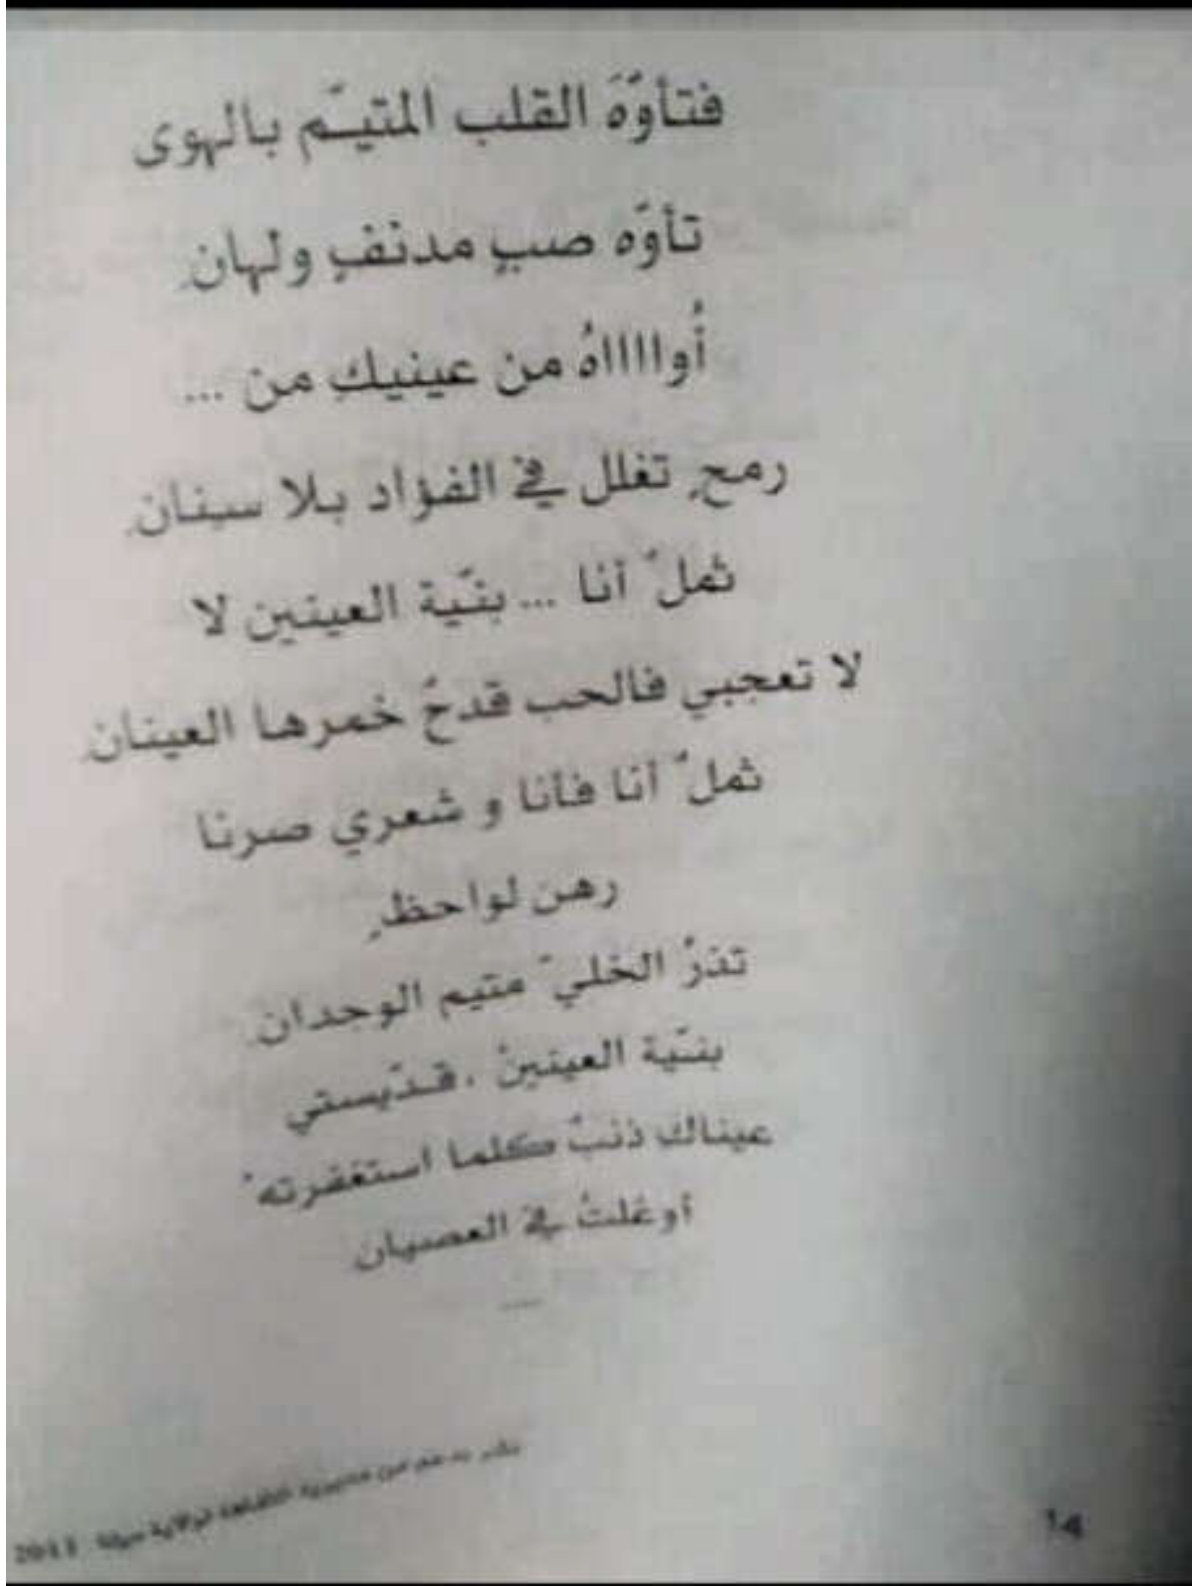 فتأوّهَ القلب المتيّم بالهوى
تأوّه صبٍ مدنفٍ ولهان
أُواااااهُ من عينيكِ من ...
رمحٍ تغلل في الفؤاد بلا سنان
ثملٌ أنا ... بنّية العينين لا
لا تعجبي فالحب قدحٌ خمرها العينان
ثملٌ أنا فأنا و شعري صرنا
رهن لواحظٍ
تذرُ الخليّ متيم الوجدان
بنّية العينينْ ، قدّيستي
عيناك ذنبٌ كلما استغفرته
أوغلتُ في العصيان
نشر بدعم من مديرية الثقافة لولاية ميلة
14